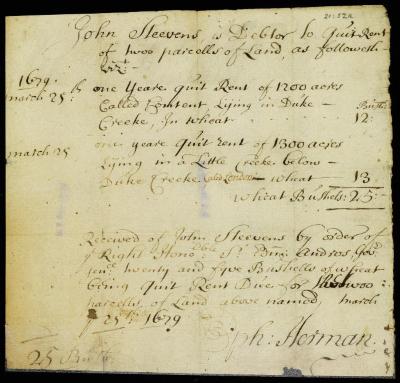 20:52A
John Steevens, is Debtor to Quit Rent
of twoo parcells of Land, as followeth
Vizt:
1679.
march 25th: one yeare Quit Rent of 1200 acres
Called Content, Lijing in Duke –
Creeke, In wheat Bushls:
12:
march 25 one yeare Quit rent of 1300 acres
Lijing in a Little Creeke below –
Duke Creeke Caled London wheat 13
Wheat Bushels: 25:
Received of John Steevens by order of
ye Right Honoble: Sr: Edm: Andros Govr:
jenr: twenty and five Bushells of wheat
being Quit Rent Due for twoo:
parcells of Land above named, march
ye 25th 1679
Eph: Herman.
25 Bush